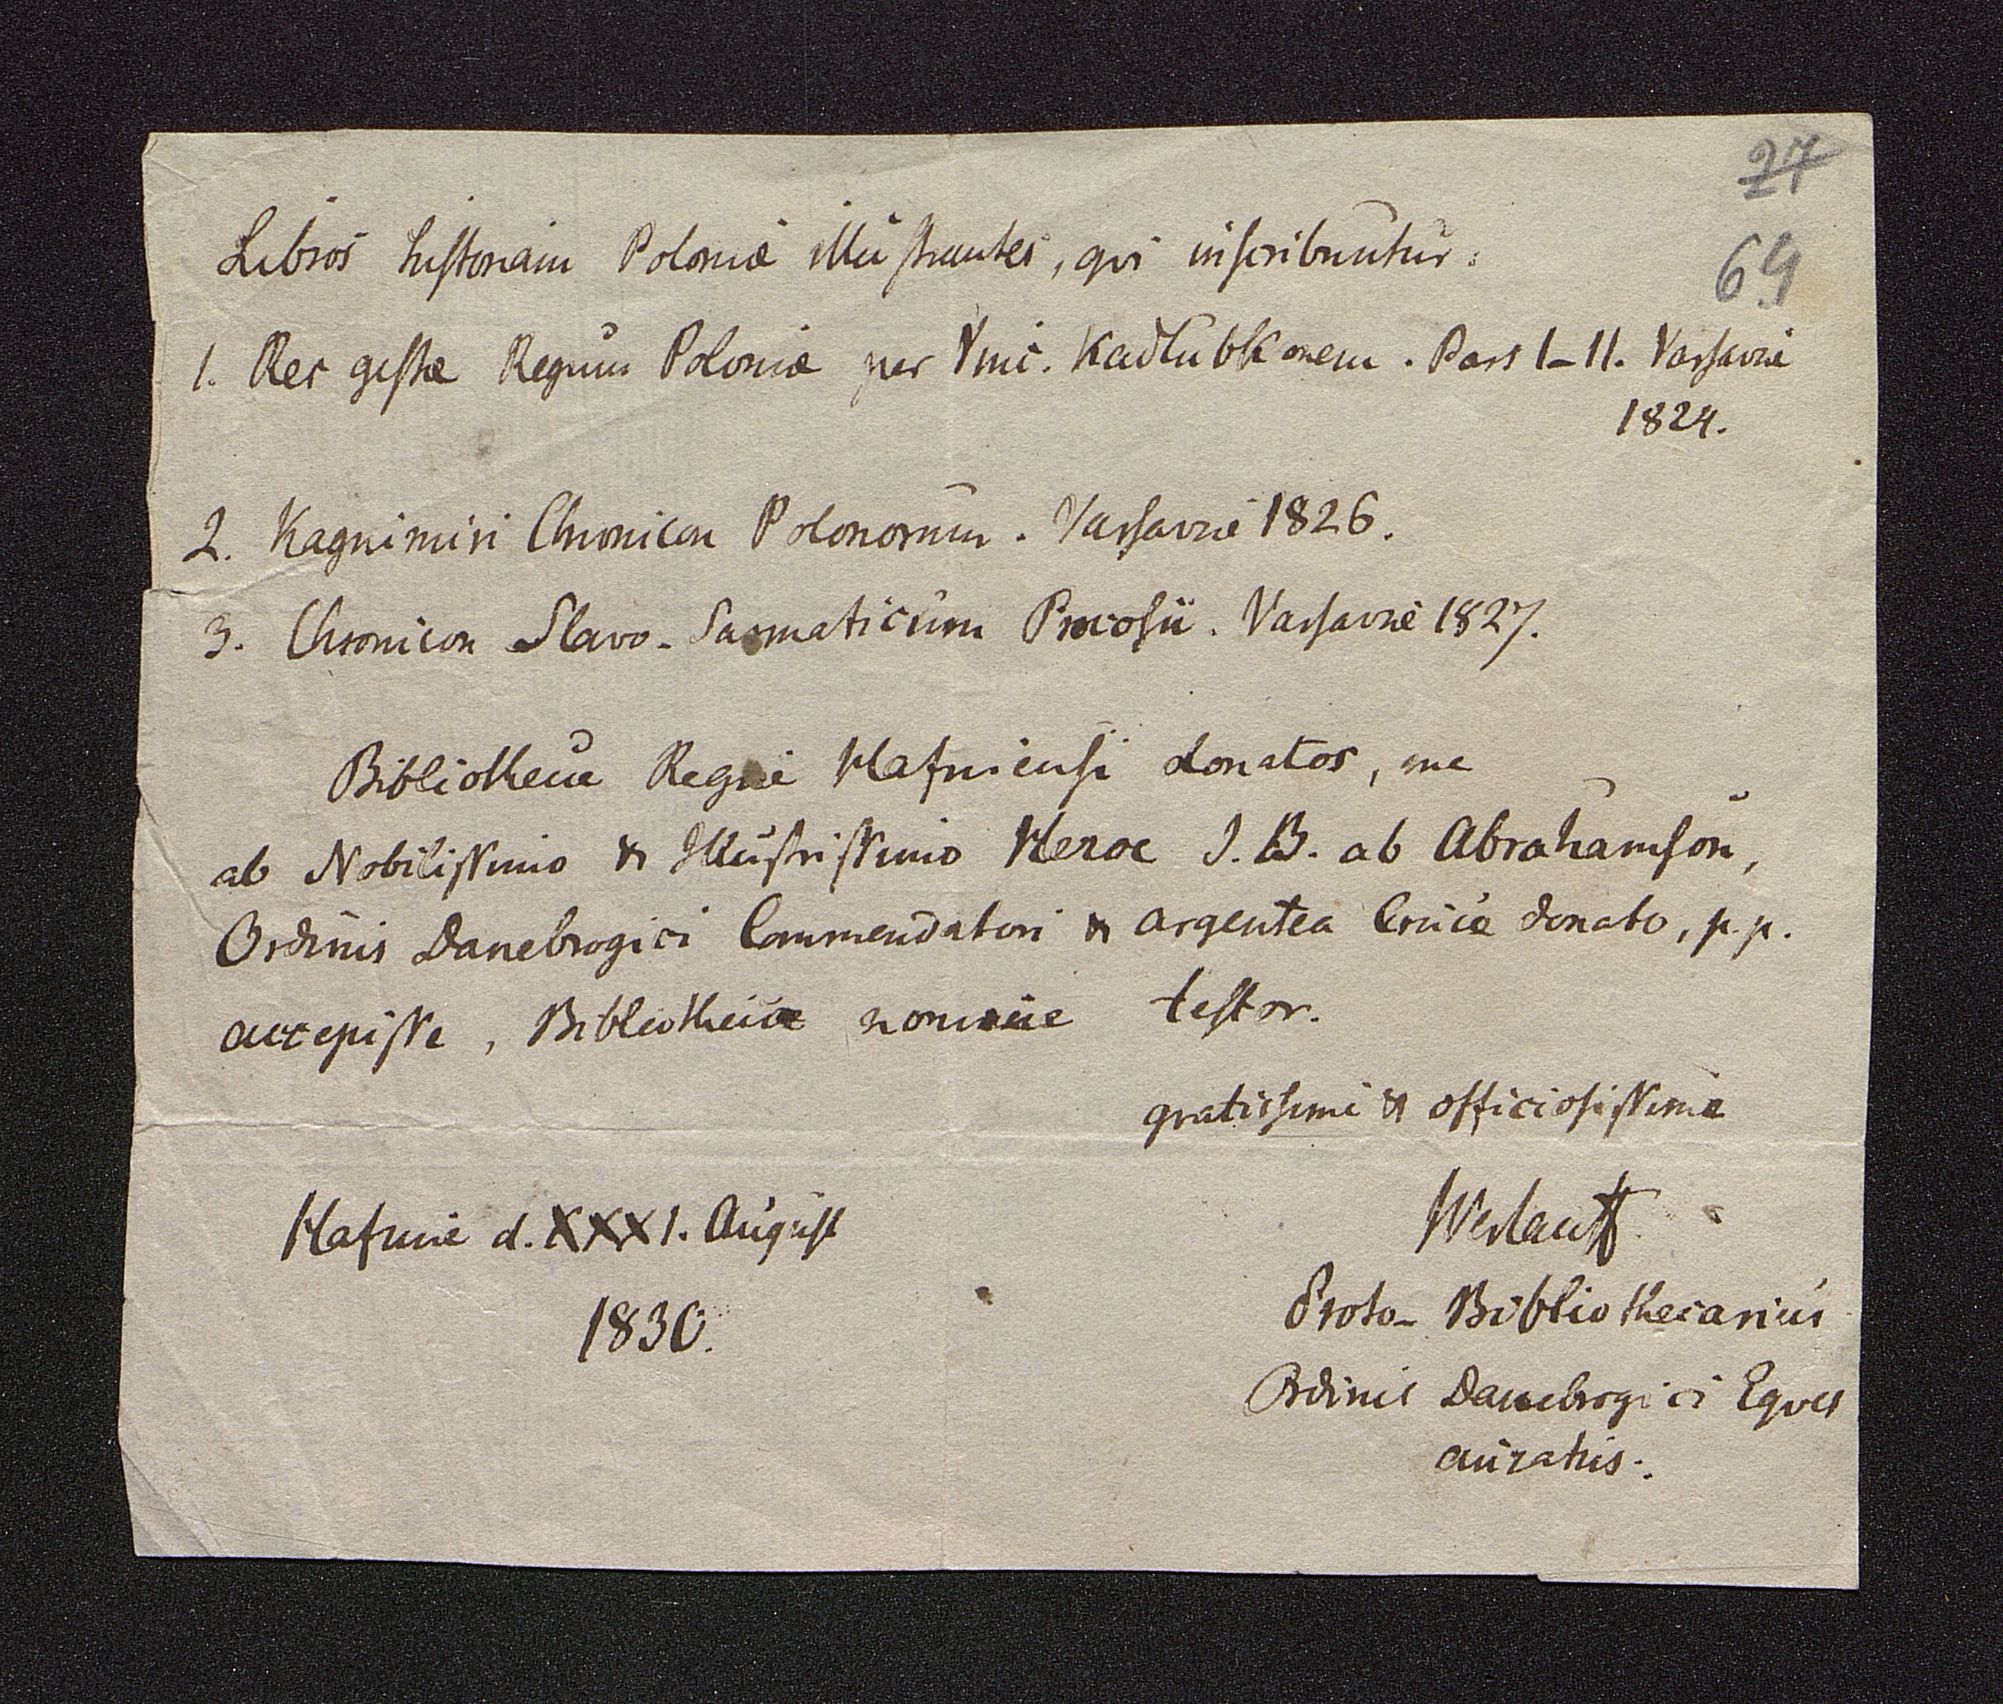 27
69
Libros historiam Poloniæ illustrantes, qvi inscribuntur:
1. Res gestæ Regum Poloniæ per Vinc. Kadlubkonem. Pars I-II. Varsaviæ
1824.
2. Kagnimiri Chronicon Polonorum. Varsaviæ 1826.
3. Chronicon Slavo-Sarmaticum Procosii. Varsaviæ 1827.
Bibliothecæ Regiæ Hafniensi donatos, me
ab Nobilissimo & Illustrissimo Heroe J. B. ab Abrahamson,
Ordinis Danebrogici Commendatori & argentea Cruce donato, p. p.
accepisse, Bibliothecæ nomine testor.
gratissime & officiosissime
Hafniæ d. XXXI. August
1830.
Werlauff
Proto-Bibliothecarius
Ordinis Danebrogici Eqves
auratus.